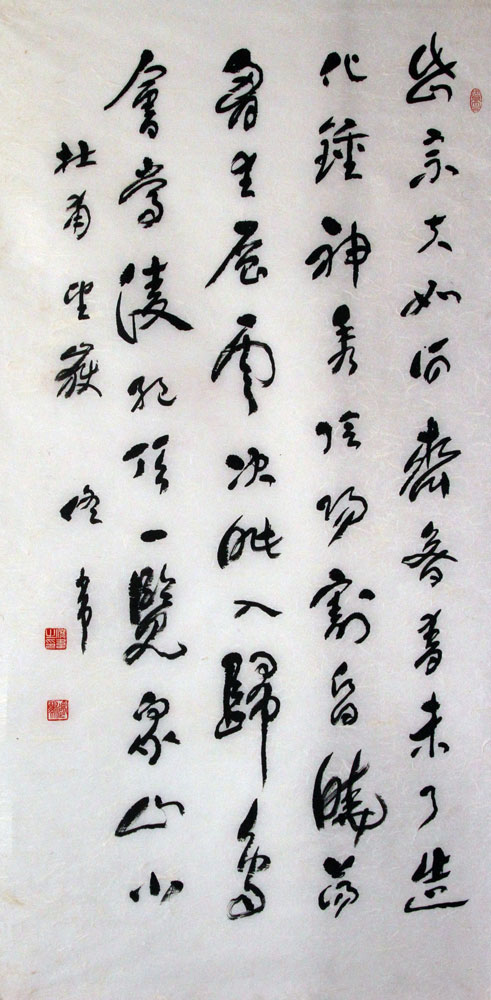 岱宗夫如何齊魯青未了造
化鍾神秀陰陽割昏曉蕩
胸生層雲決眥入歸鳥
會當淩絕頂一覽眾山小
杜甫望嶽 佟韋